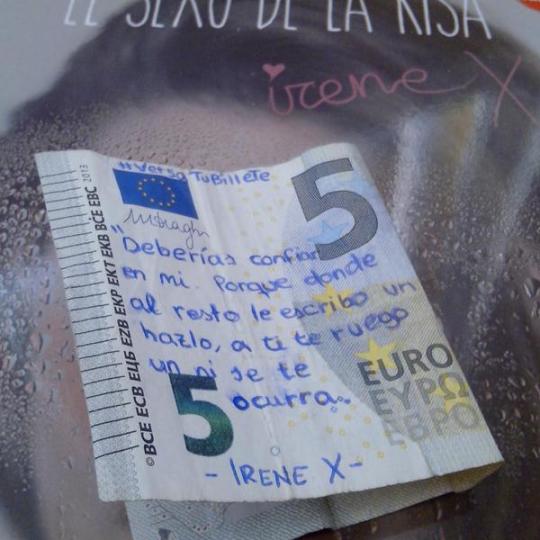 EL SEXO DE LA RISA
irene X
#VersaTuBillete
5
M. Draghi
"Deberías confiar
en mi. Porque donde
al resto le escribo un
hazlo, a ti te ruego
un ni se te
ocurra."
5
- IRENE X -
EURO
ΕΥΡΩ
ЕВРО
©BCE ECB ЕЦБ EZB EKP EKT EKB BĊE EBC 2013